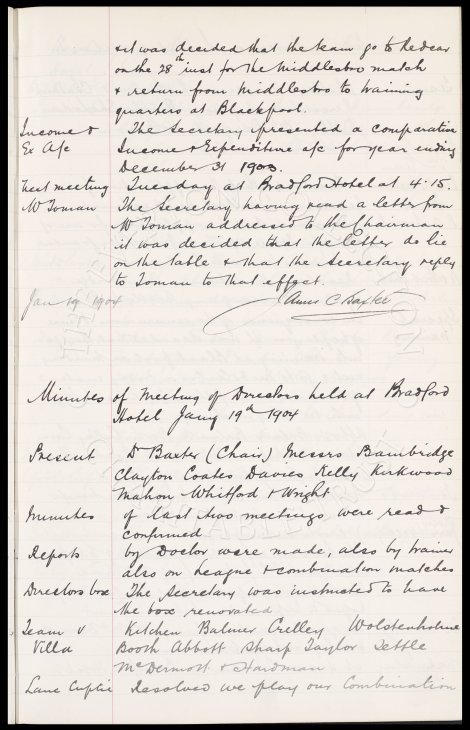 & it was decided that the team go to Redcar
on the 28th inst for the Middlesbro match
& return from Middlesbro to training
quarters at Blackpool.
Income & The Secretary presented a comparative
Ex A/c Income & Expenditure a/c for year ending
December 31 1903.
Next meeting Tuesday at Bradford Hotel at 4.15.
Mr Toman The Secretary having read a letter from
Mr Toman addressed to the Chairman
it was decided that the letter do lie
on the table & that the Secretary reply
to Toman to that effect.
Jan 19' 1904 James C Baxter
Minutes of Meeting of Directors held at Bradford
Hotel Jany 19th 1904
Present Dr Baxter (Chair) Messrs Bainbridge
Clayton Coates Davies Kelly Kirkwood
Mahon Whitford & Wright
Minutes of last two meetings were read &
confirmed
Reports by Doctor were made, also by trainer
also on League & Combination matches
Directors box The Secretary was instructed to have
the box renovated
Team v Kitchen Balmer Crelley Wolstenholme
Villa Booth Abbott Sharp Taylor Settle
McDermott & Hardman
Lanc Cuptie Resolved we play our Combination